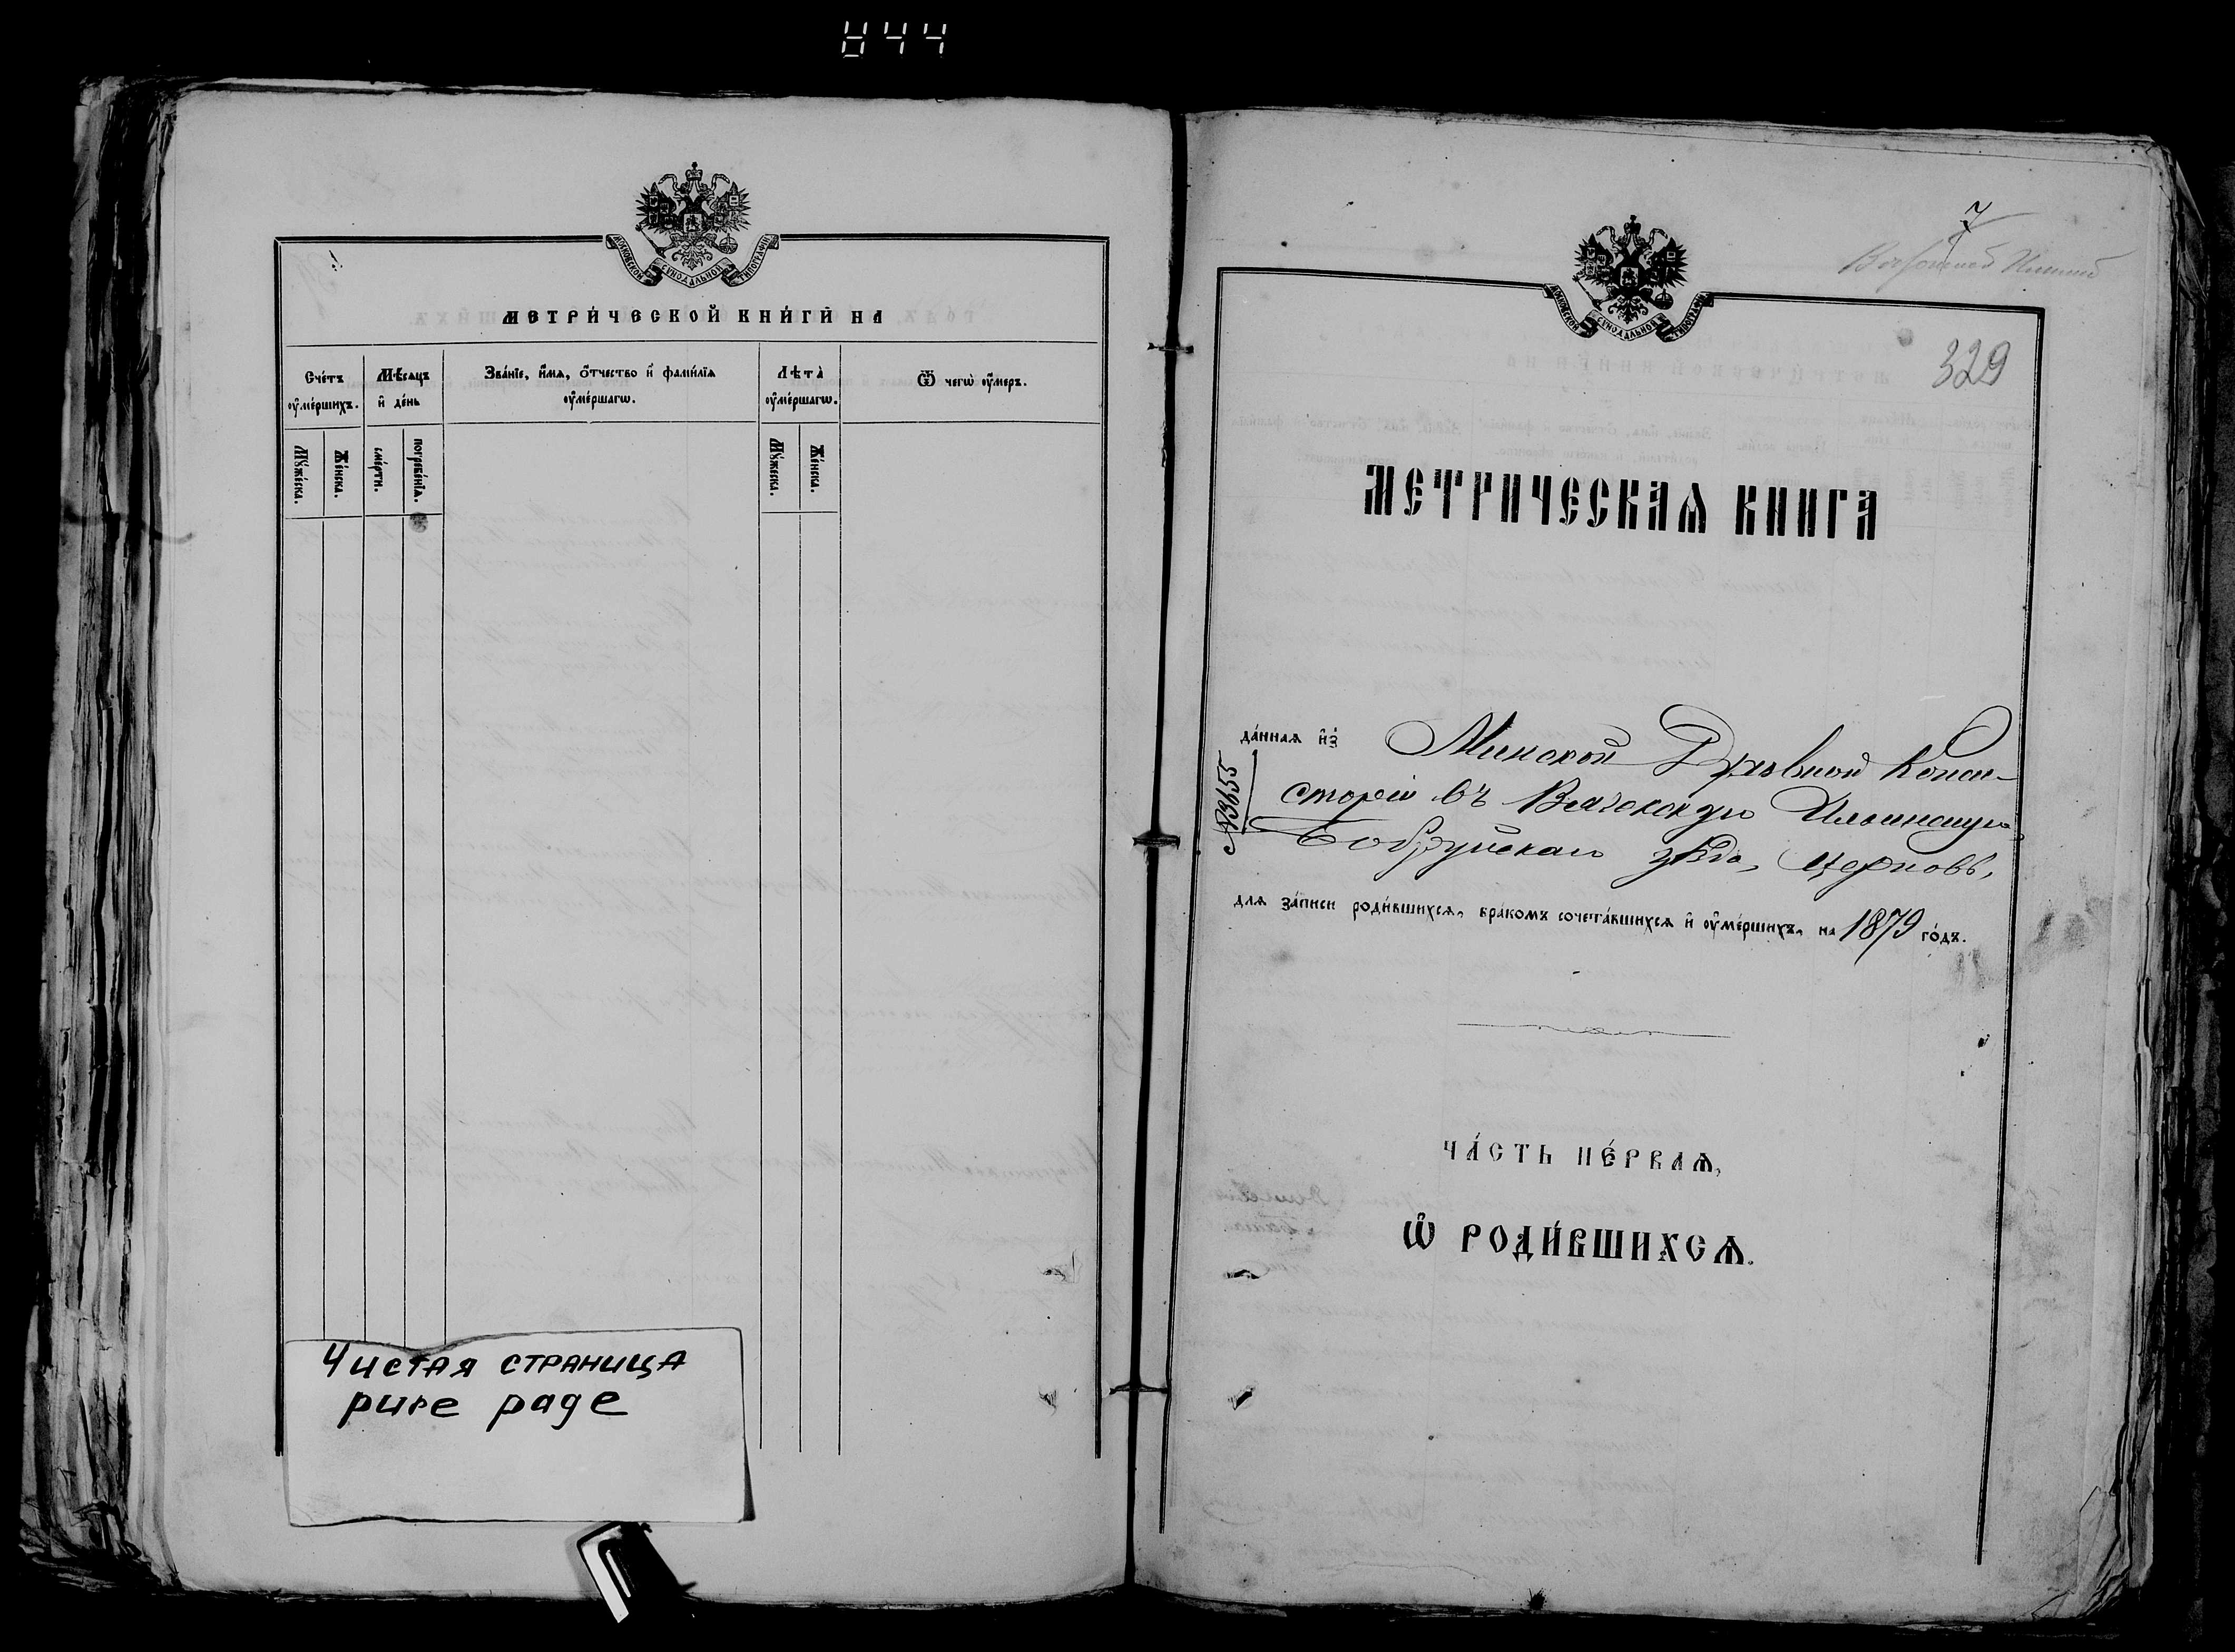 844
МОСКОВСКОЙ СѴНОДАЛЬНОЙ ТИПОГРАФІИ
МЕТРИ́ЧЕСКОЙ КНИ́ГИ НА
Сче́тъ оу҆ме́ршихъ.
Мѣ́сяцъ и҆ де́нь
Зва́нїе, и҆́мѧ, ѻ҆́тчество и҆ фами́лїѧ оу҆ме́ршагѡ.
Лѣ́та оу҆ме́ршагѡ.
Ѿ чегѡ̀ оу҆́меръ.
Мꙋ́жеска.
Же́нска.
сме́рти.
погребе́нїѧ.
Мꙋ́жеска.
Же́нска.
Чистая страница
pure page
7
МОСКОВСКОЙ СѴНОДАЛЬНОЙ ТИПОГРАФІИ
329
МЕТРИЧЕСКАѦ КНИГА
да́ннаѧ и҆з̾ Минской Духовной Конси-
сторіи въ Вѧчскскую Ильинскую
Бобруйскаго уѣзда, церковь,
№3655
длѧ за́писи роди́вшихсѧ, бра́комъ сочета́вшихсѧ и҆ оу҆ме́ршихъ, на 1879 го́дъ.
ЧА́СТЬ ПЕ́РВАѦ,
Ѡ҆ РОДИ́ВШИХСѦ.